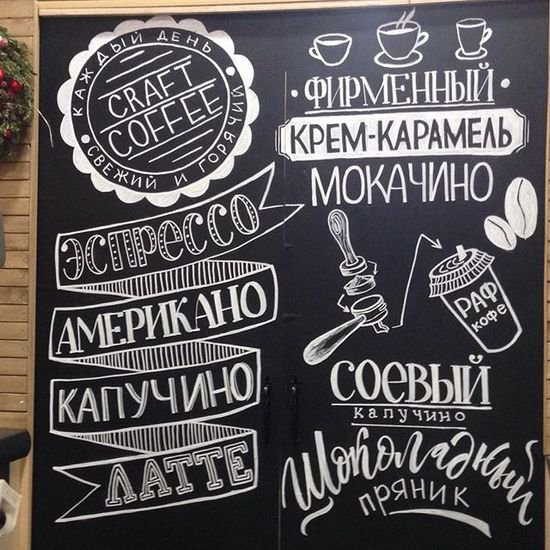 КАЖДЫЙ ДЕНЬ
CRAFT
COFFEE
СВЕЖИЙ И ГОРЯЧИЙ
ЭСПРЕССО
АМЕРИКАНО
КАПУЧИНО
ЛАТТЕ
ФИРМЕННЫЙ
КРЕМ-КАРАМЕЛЬ
МОКАЧИНО
РАФ
кофе
СОЕВЫЙ
капучино
Шоколадный
пряник